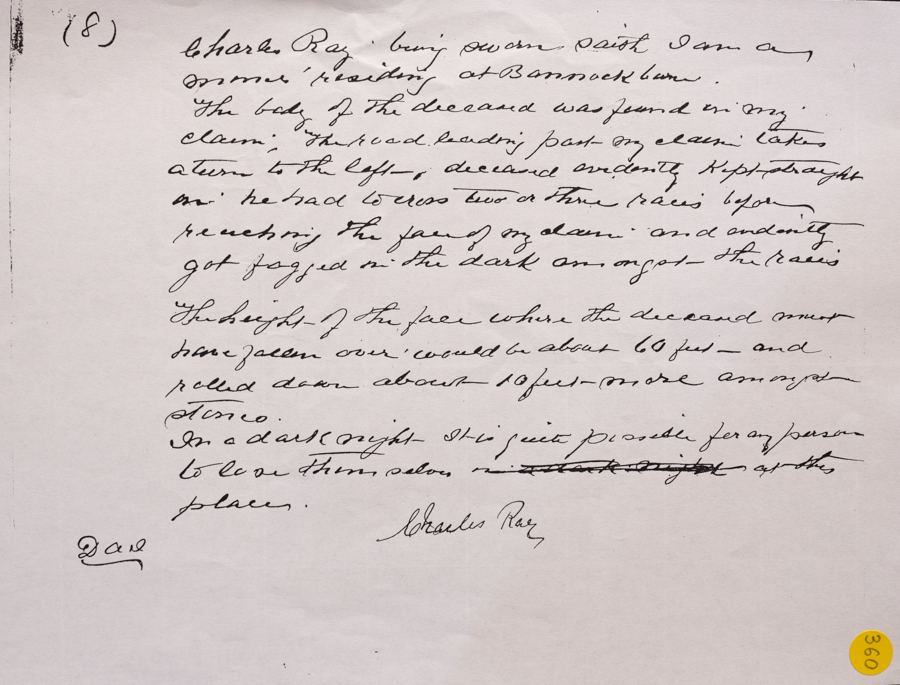 (8)
Charles Ray being sworn saith I am a
miner residing at Bannockburn.
The body of the deceased was found in my
claim, The road leading past my claim takes
a turn to the left, deceased evidently kept straight
on he had to cross two or three races before
reaching the face of my claim and evidently
got fogged in the dark amongst the races
The height of the face where the deceased must
have fallen over would be about 60 feet and
rolled down about 10 feet more amongst
stones.
In a dark night It is quite possible for any person
to lose themselves in a dark night at this
place.
Charles Ray
360